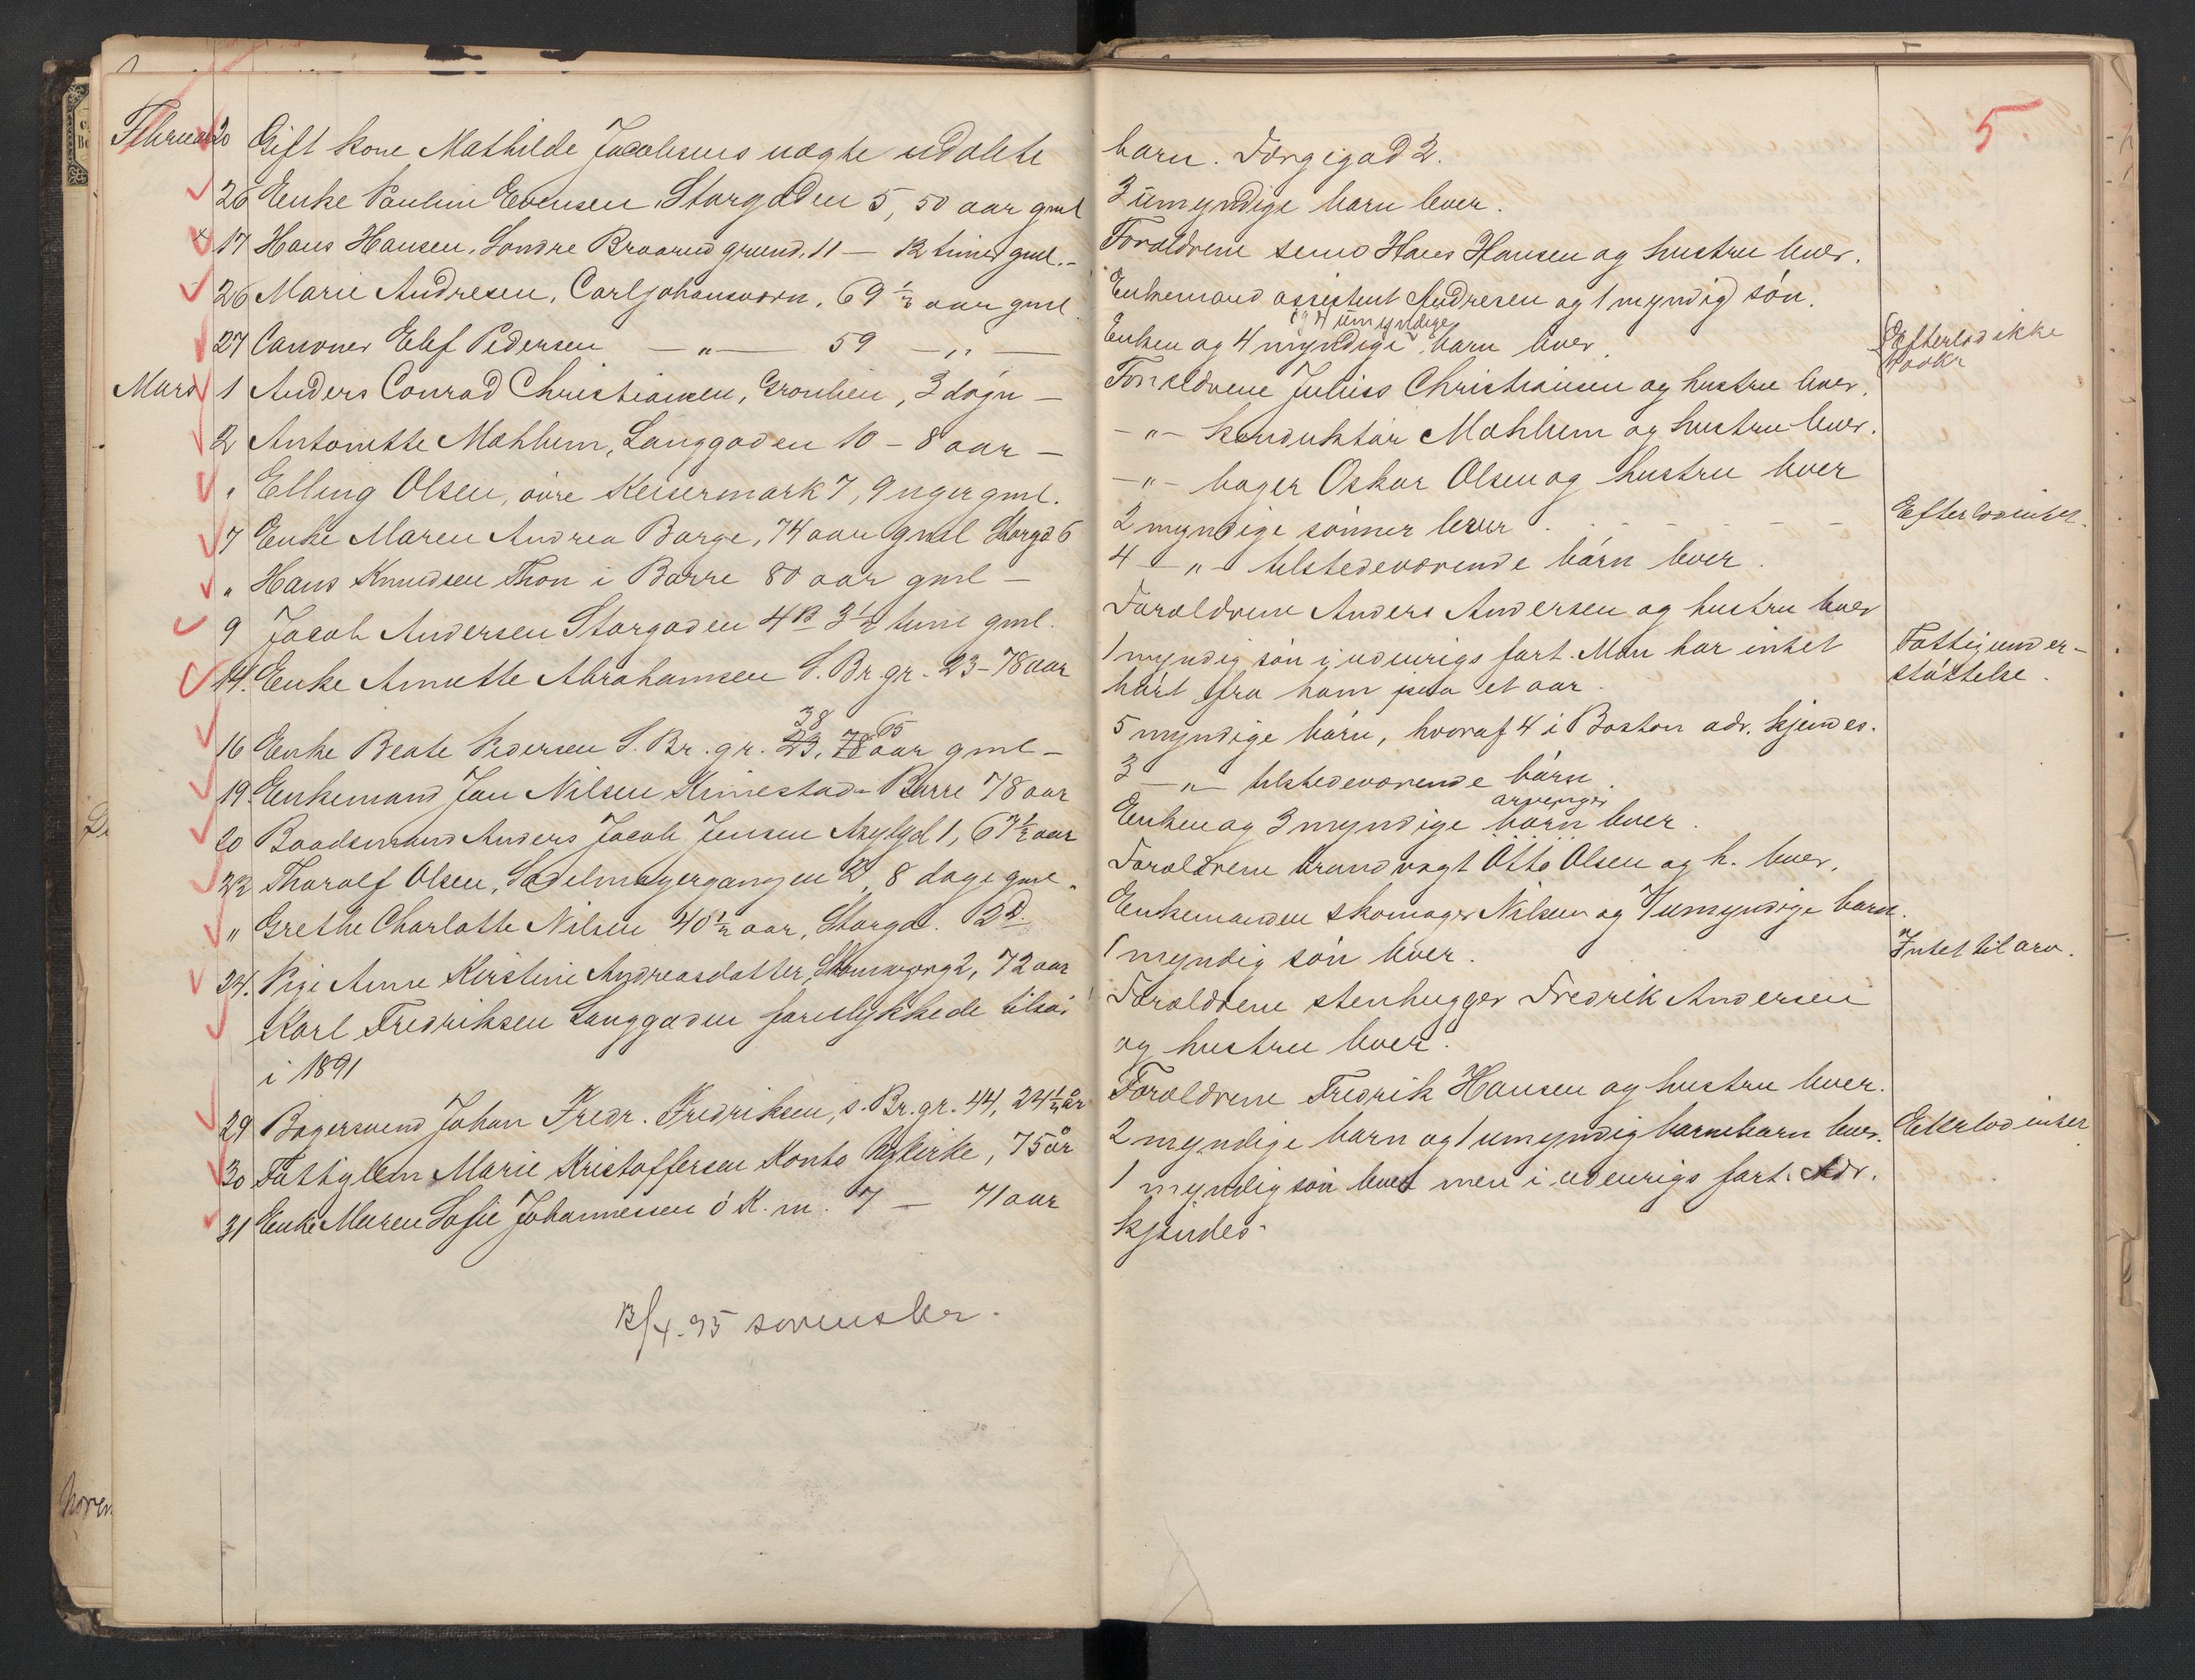 5.
Februar 20 Gift kone Mathilde Jacobsens uægte udøbte
barn. Færgegad 2.
26 Enke Pauline Evensen Storgaden 5, 50 aar gml
3 umyndige barn lever.
× 17 Hans Hansen, Søndre Braarud grund. 11 — 12 timer gml. -
Forældrene Hans Hansen og hustru lever.
26 Marie Andresen, Carljohansværn, 69 1/2 aar gml
Enkemand assistent Andresen og 1 myndig søn.
27 Canoner Elef Pedersen — " — 59 — " —
og 4 umyndige
Enken og 4 myndige barn lever.
Efterlod ikke
Mars 1 Anders Conrad Christiansen, Grønlien, 3 døgn —
Forældrene Julius Christiansen og hustru lever.
2 Antonette Mæhlum, Langgaden 10 - 8 aar —
- " - konduktør Mæhlum og hustru lever.
" Elling Olsen, øvre Keisermark 7, 9 uger gml.
- " - bager Oskar Olsen og hustru lever
7 Enke Maren Andrea Borge, 74 aar gml Storgd 6
2 myndige sønner lever . - - - - - -
Efterlod intet.
" Hans Knudsen Thon i Borre 80 aar gml —
4 — " — tilstedeværende børn lever.
9 Jacob Andersen Storgaden 4B 3 1/2 time gml.
Forældrene Anders Andersen og hustru lever
14. Enke Anette Abrahamsen S. Br. gr. 23 - 78 aar
1 myndig søn i udenrigs fart. Man har intet
hørt fra ham paa et aar.
Fattigunder-
støttelse.
38 65
16 Enke Beate Pedersen S. Br. gr. 23, 78 aar gml —
5 myndige børn, hvoraf 4 i Boston adr. kjendes.
19. Enkemand Jan Nilsen Kinnestad - Borre 78 aar
3 — " — tilstedeværende børn.
20 Baadsmand Anders Jacob Jensen Asylgd 1, 67 1/2 aar
arvinger
Enken og 3 myndige børn lever.
22 Thoralf Olsen, Sadelmagergangen 2, 8 dage gml.
Forældrene brandvagt Otto Olsen og h. lever.
" Grethe Charlotte Nilsen 40 1/2 aar, Storgd. 12 d.
Enkemanden skomager Nilsen og 7 umyndige barn.
24. Pige Anne Kirstine Andreasdatter, 2, 72 aar
1 myndig søn lever.
Intet til arv.
Karl Fredriksen Langgaden forulykkede tilsøs
i 1891
Forældrene stenhugger Fredrik Andersen
og hustru lever.
29 Bagersvend Johan Fredr. Fredriksen, s. Br. gr. 44, 24 1/2 år
Forældrene Fredrik Hansen og hustru lever.
30 Fattiglem Marie Kristoffersen Konto Nykirke, 75 år
2 myndige barn og 1 umyndig barnebarn lever.
Efterlod intet
31 Enke Maren Sofie Johannessen ö K. m. 7 — 71 aar
1 myndig søn lever men i udenrigs fart. Adr.
kjendes.
12/4. 95 sorenskr.